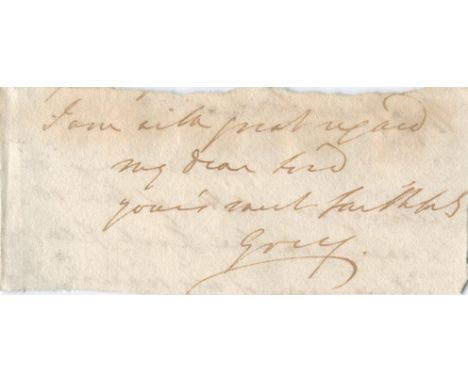 I am with great regard
my dear Lord
your's most faithfully
Grey.